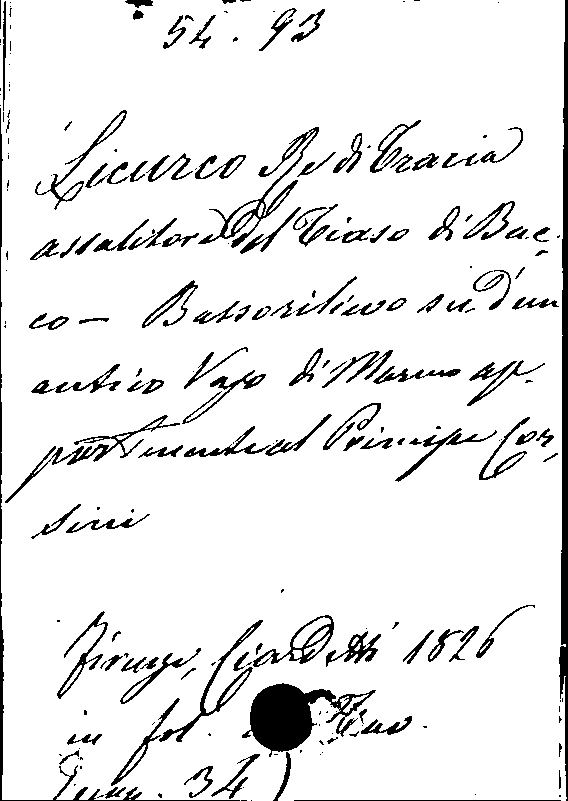 54. 93
Licurco Re di Tracia
assalitore del Tiaso di Bac-
co — Bassorilievo su d'un
antico Vaso di Marmo ap-
partenente al Principe Cor-
sini
Firenze, Ciardetti 1826
in fol. Tav.
34)